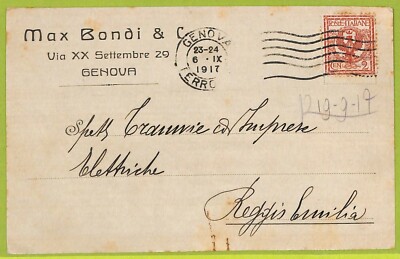 Max Bondi & C
Via XX Settembre 29
GENOVA
GENOVA
23-24
6 · IX
1917
FERRO
POSTE ITALIANE
2
R 19-9-17
Spett Tramvie ed Imprese
Elettriche
Reggio Emilia